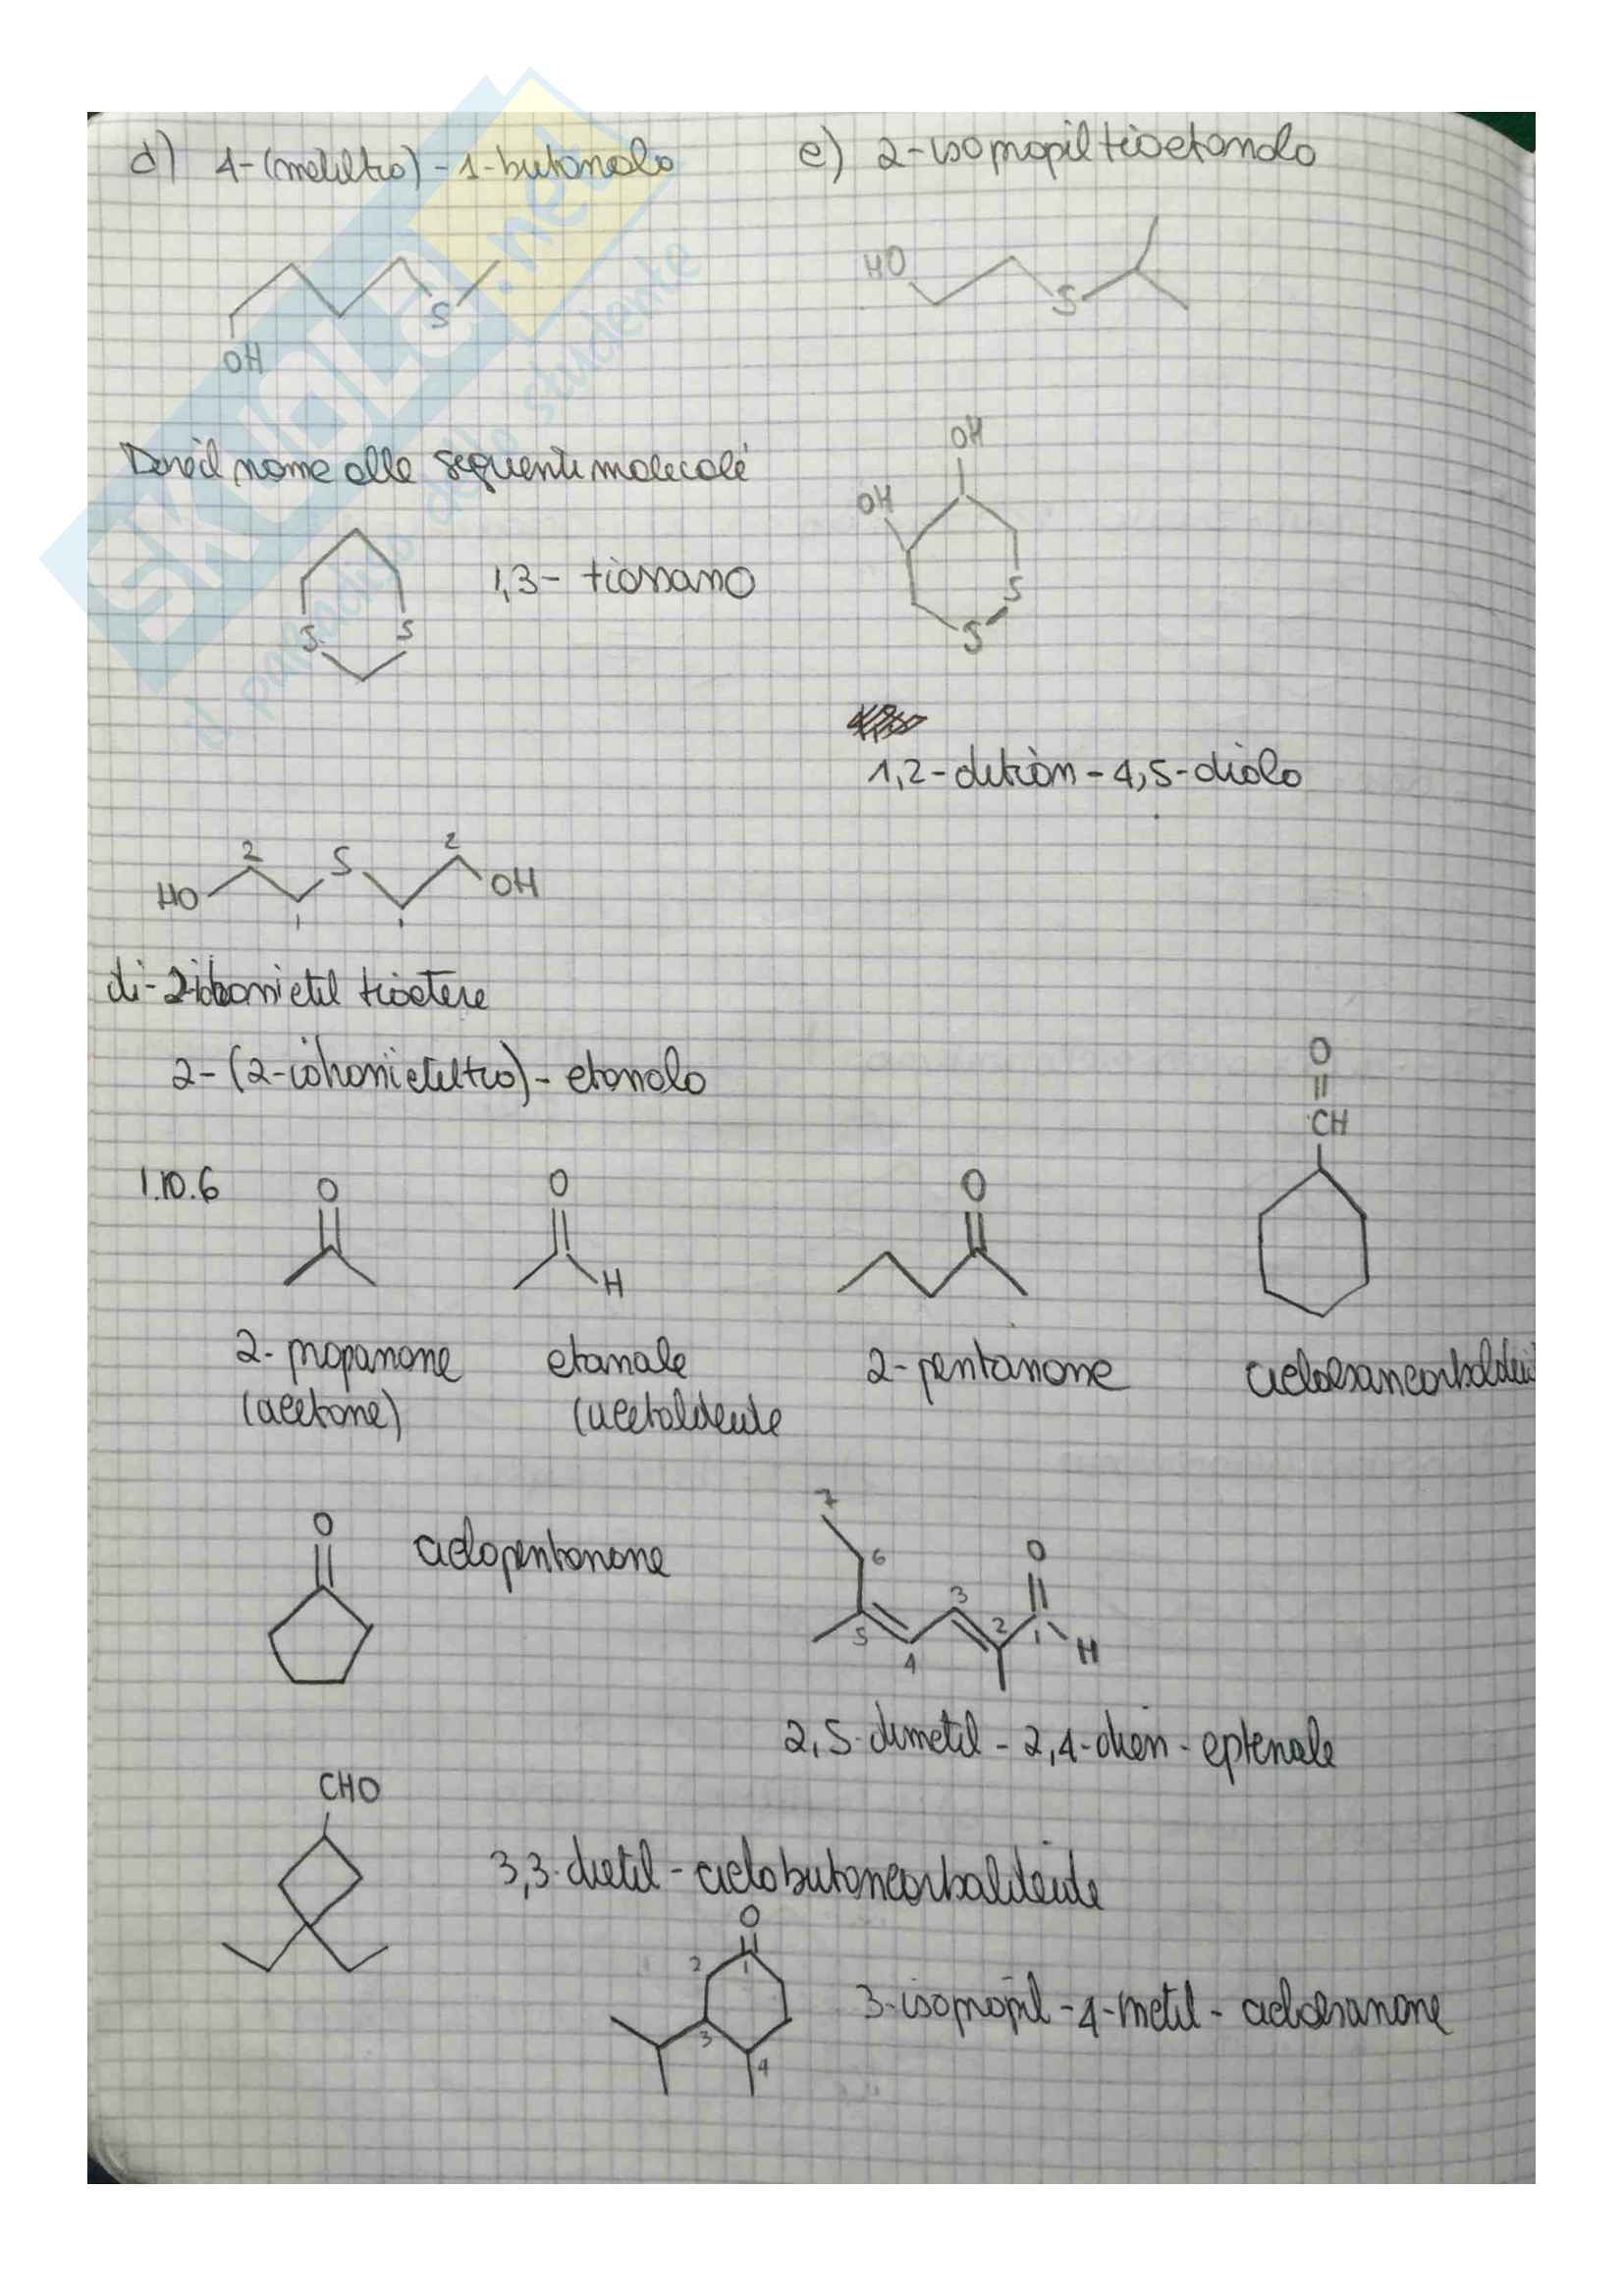 d) 4-(metiltio)-1-butanolo
e) 2-isopropiltioetanolo
OH
S
HO
S
Dare il nome alle seguenti molecole
S
S
1,3-tiossano
OH
OH
S
S
1,2-ditian-4,5-diolo
HO
2
1
S
1
2
OH
di-2-idrossietil tioetere
2-(2-idrossietiltio)-etanolo
1.10.6
O
2-propanone
(acetone)
O
H
etanale
(acetaldeide
O
2-pentanone
O
CH
cicloesancarbaldeid
O
ciclopentanone
7
6
5
4
3
2
1
O
H
2,5-dimetil-2,4-dien-eptenale
CHO
3,3-dietil-ciclobutancarbaldeide
O
1
2
3
4
3-isopropil-4-metil-cicloesanone
SKUOLA.net
il paradiso dello studente